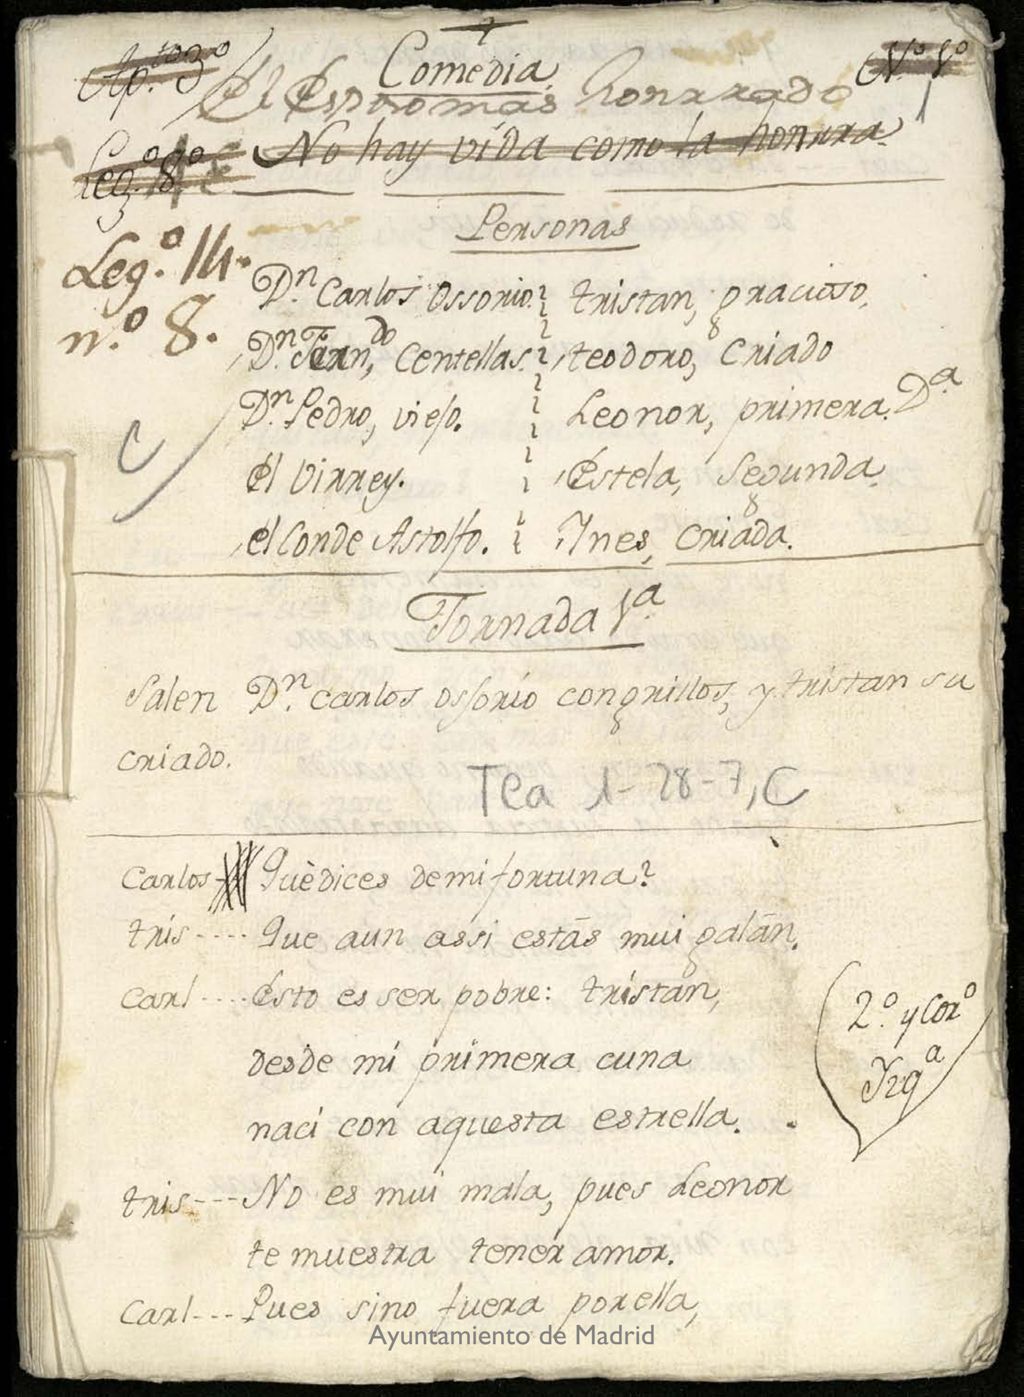 Ap.to 3º
Comedia
Nº 1º
El Esposo mas honrrado
Leg.º 8º
No hay vida como la honrra.
Personas
Leg.º 14.
n.º 8.
Dn. Carlos Ossorio. tristan, gracioso.
Dn. Fernndo, Centellas. teodoro, criado
Dn. Pedro, viejo. Leonor, primera. Dª
él Virrey. Éstela, Segunda.
él Conde Astolfo. Ynes, criada.
C
Jornada 1ª
Salen Dn. Carlos ossorio con grillos, y tristan su
criado.
Tea 1-28-7, C
Carlos- Què dices de mi fortuna?
tris---- Que aun assi estás mui galán.
Carl---- Ésto es ser pobre: tristán,
desde mi primera cuna
naci con aquesta estrella.
2.º y Corº
Yzqª
tris--- No es mui mala, pues Leonor
te muestra tener amor.
Carl--- Pues sino fuera por ella,
Ayuntamiento de Madrid